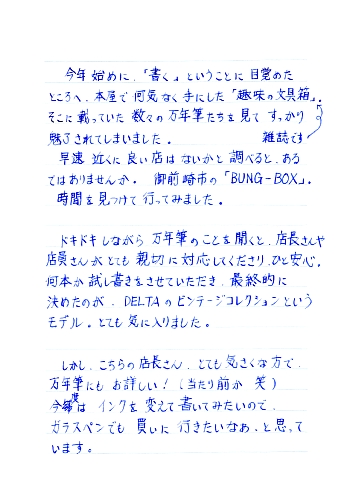 今年始めに、「書く」ということに目覚めた
ところへ、本屋で何気なく手にした「趣味の文具箱」。
そこに載っていた数々の万年筆たちを見てすっかり
魅了されてしまいました。
雑誌です
早速近くに良い店はないかと調べると、ある
ではありませんか。御前崎市の「BUNG-BOX」。
時間を見つけて行ってみました。
ドキドキしながら万年筆のことを聞くと、店長さんや
店員さんがとても親切に対応してくださり、ひと安心。
何本か試し書きをさせていただき、最終的に
決めたのが、DELTAのビンテージコレクションという
モデル。とても気に入りました。
しかし、こちらの店長さん、とても気さくな方で、
万年筆にもお詳しい!(当たり前か 笑)
今度はインクを変えて書いてみたいので、
ガラスペンでも買いに行きたいなぁ、と思って
います。